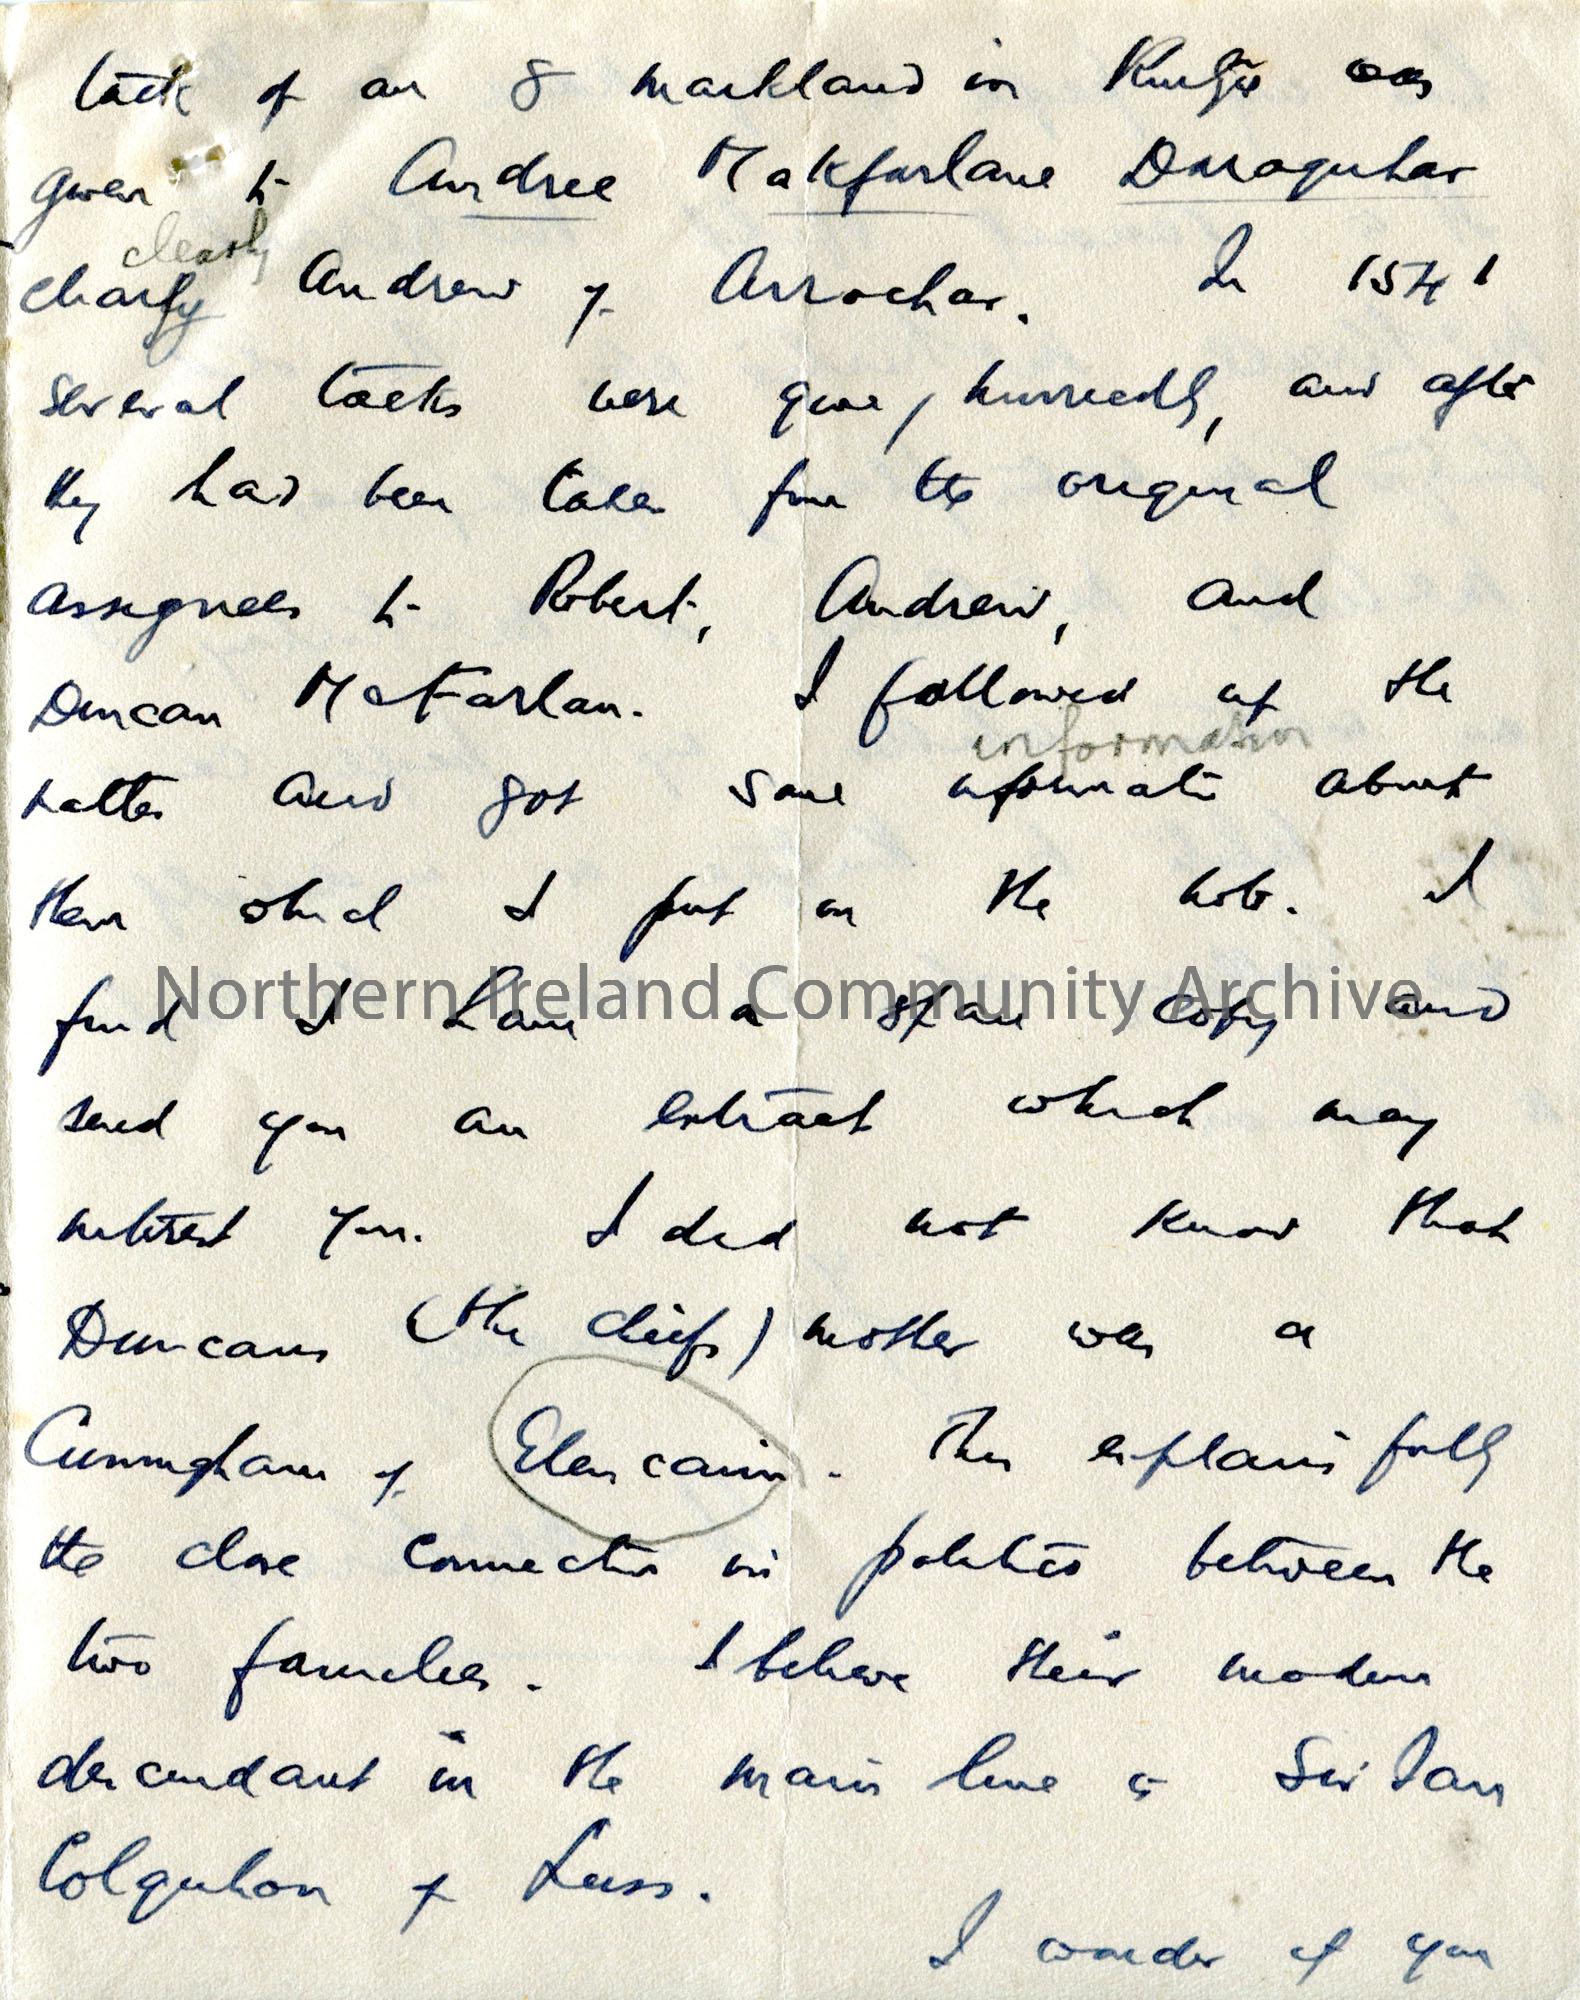 tack of an 8 markland in was
given to Andree Makfarlane Daraquhar
clearly
clearly Andrew of Arrochar. In 1541
several tacks were given, hurriedly, and after
they had been taken from the original
assignees to Robert, Andrew, and
Duncan McFarlan. I followed up the
information
matter and got some information about
them which I put in the note. I
find I have a spare copy and
Northern Ireland Community Archive
send you an extract which may
interest you. I did not know that
Duncans (the chiefs) mother was a
Cunningham of Glencairn. This explains fully
the close connection in politics between the
two families. I believe their modern
descendant in the main line is Sir Ian
Colquhon of Luss.
I wonder if you